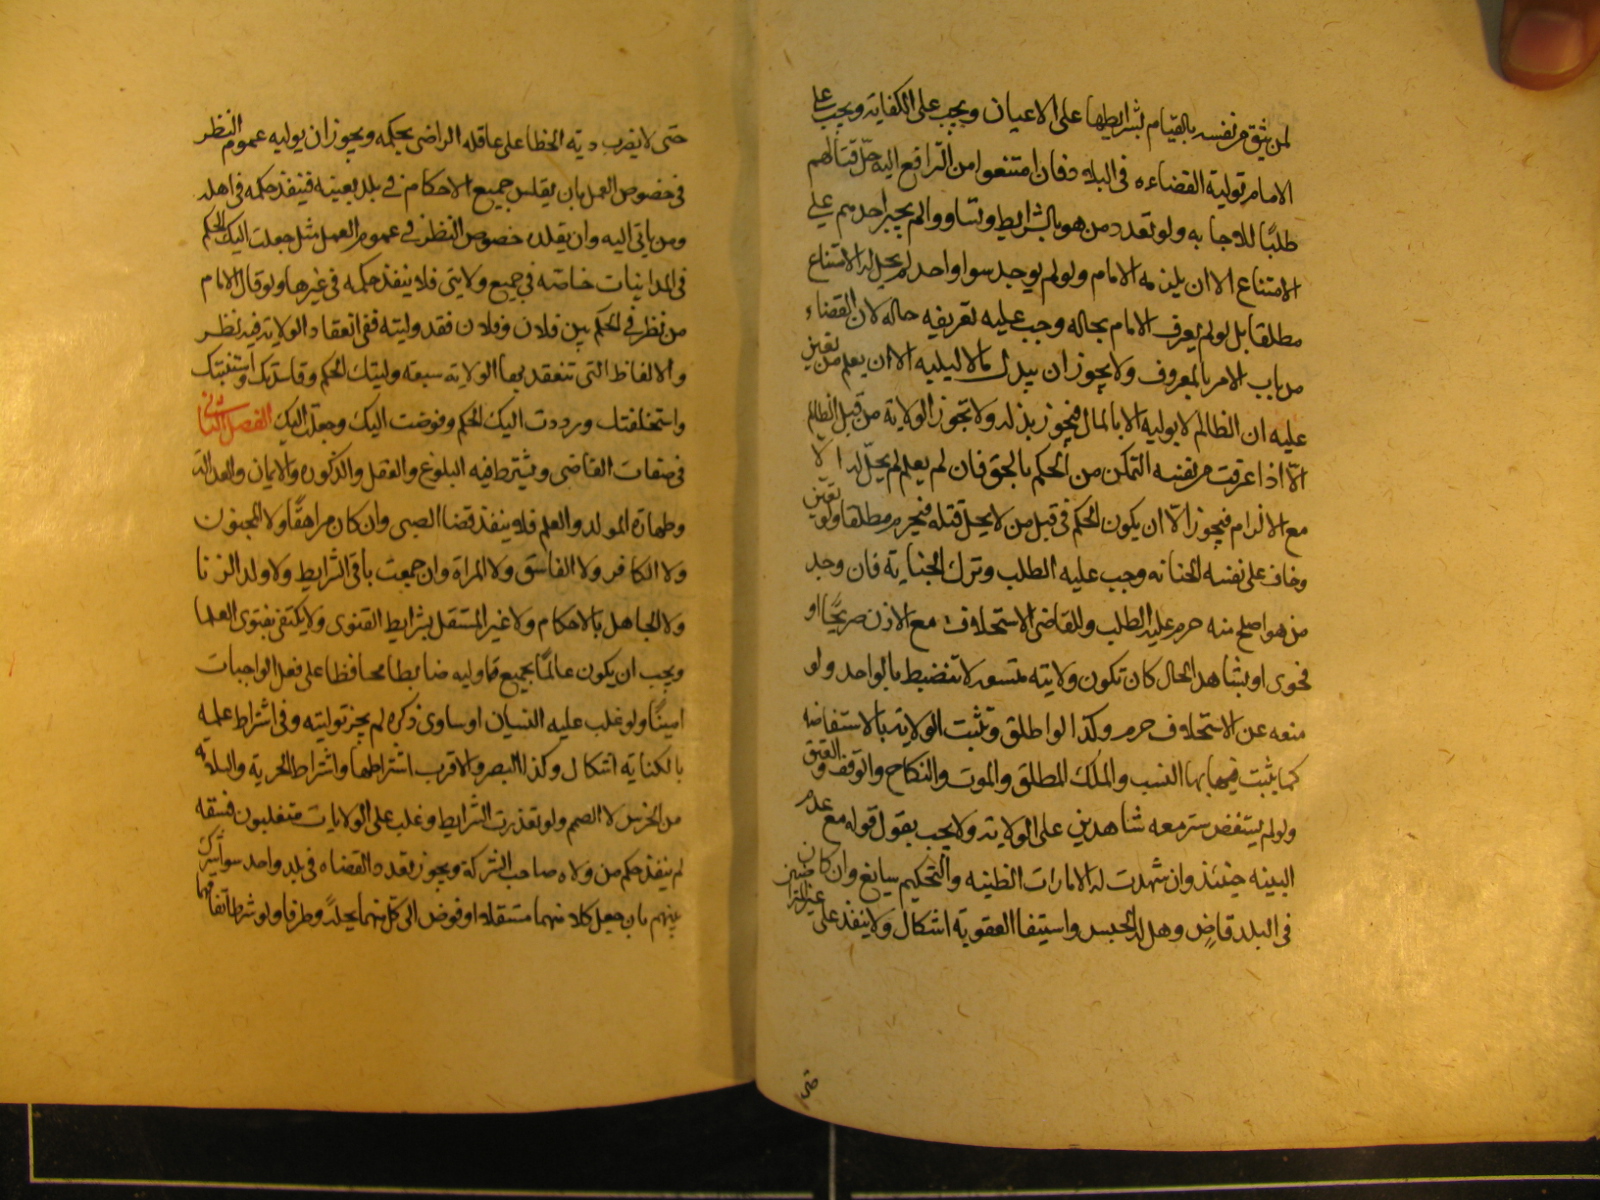 لمن يثق من نفسه بالقيام بشرايطها على الاعيان ويجب على الكفاية ويجب على
الامام تولية القضاء في البلاد فان امتنعوا من الترافع اليه حل قتالهم
طلبا للاجابه ولو تعدد من هو بالشرايط وتساووا لم يجبر احدهم على
الامتناع الا ان يلزمه الامام ولو لم يوجد سوا واحد لم يحل له الامتناع
مطلقا بل لو لم يعرف الامام بحاله وجب عليه تعريفه حاله لان القضاء
من باب الامر بالمعروف ولا يجوز ان يبذل مالا ليليه الا ان يعلم من تعين
عليه ان الظالم لا يوليه الا بالمال فيجوز بذله ولا تجوز الولاية من قبل الظالم
الا اذا عرفت من نفسه التمكن من الحكم بالحق فان لم يعلم لم يحل له الا
مع الالزام فيجوز الا ان يكون الحكم في قبل من لا يحل قتله فيحرم مطلقا ولو تعين
وخاف على نفسه الخيانه وجب عليه الطلب وترك الخيانة فان وجد
من هو اصلح منه حرم عليه الطلب وللقاضي الاستخلاف مع الاذن صريحا او
فحوى او بشاهد الحال كان تكون ولايته متسعه لا تنضبط بالواحد ولو
منعه عن الاستخلاف حرم وكذا لو اطلق وتثبت الولاية بالاستفاضه
كما يثبت بها النسب والملك المطلق والموت والنكاح والوقف والعتق
ولو لم يستفض سير معه شاهدين على الولاية ولا يجب بقول قوله مع عدم
البينه حينئذ وان شهدت له الامارات الظنيه والتحكيم سايغ وان كان
في البلد قاض وهل له الحبس واستيفا العقوبة اشكال ولا ينفذ على غير المتراضيين
حتى
حتى لا يضرب دية الخطا على عاقله الراضي بحكمه ويجوز ان يوليه عموم النظر
في خصوص العمل بان يقلس جميع الاحكام في بلد بعينه فينفذ حكمه في اهله
ومن ياتي اليه وان يقلده خصوص النظر في عموم العمل مثل جعلت اليك الحكم
في المداينات خاصه في جميع ولايتي فلا ينفذ حكمه في غيرها ولو قال الامام
من نظر في الحكم بين فلان وفلان فقد وليته ففي انعقاد الولاية فيه نظر
والالفاظ التي تنعقد بها الولايه سبعه وليتك الحكم وقلدتك واستنبتك
واستخلفتك ورددت اليك الحكم وفوضت اليك وجعلت اليك الفصل الثاني
في صفات القاضي ويشترط فيه البلوغ والعقل والذكوره والايمان والعدالة
وطهارة المولد والعلم فلا ينفذ قضا الصبي وان كان مراهقا ولا المجنون
ولا الكافر ولا الفاسق ولا المراة وان جمعت باقي الشرايط ولا ولد الزنا
ولا الجاهل بالاحكام ولا غير المستقل بشرايط الفتوى ولا يكتفي بفتوى العلما
ويجب ان يكون عالما بجميع ما وليه ضابطا محافظا على فعل الواجبات
امينا ولو غلب عليه النسيان او ساوى ذكره لم يجز توليته وفي اشتراط علمه
بالكتابة اشكال وكذا البصر والاقرب اشتراطهما واشتراط الحرية والسلامة
من الخرس لا الصمم ولو تعذرت الشرايط وغلب على الولايات متغلبون فسقه
لم ينفذ حكم من ولاه صاحب الشركة ويجوز تعدد القضاه في بلد واحد سوا اشرك
بينهم بان جعل كلا منهما مستقلا او فوض الى كل منهما محلة وطرفا ولو شرط اتفاقهما